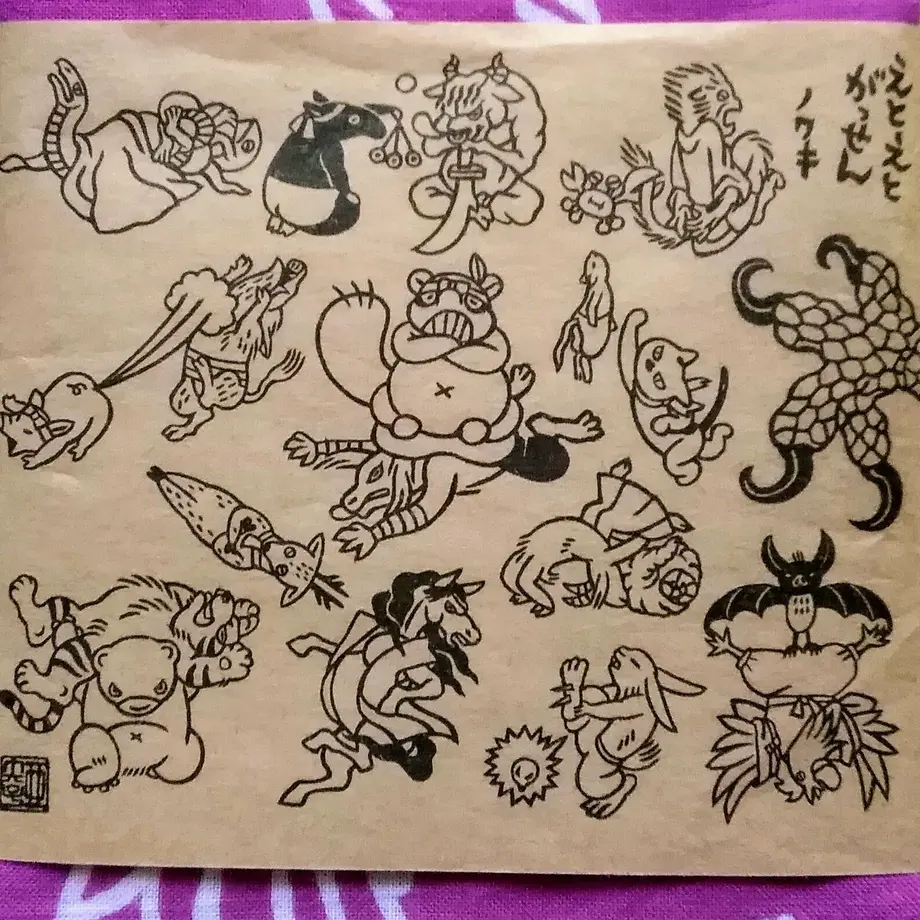 えとえと
がっせん
ノワキ